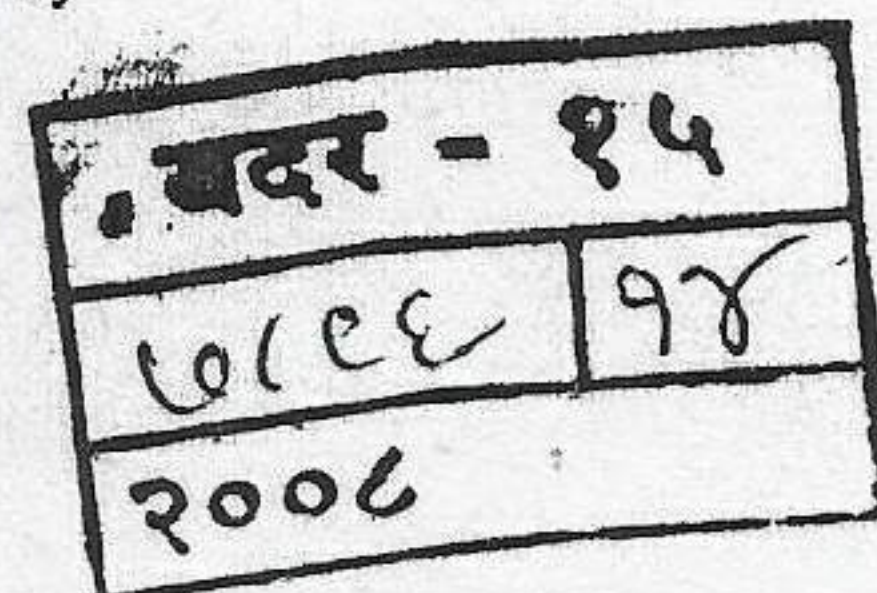 बदर - १५
७८९६ १४
२००८